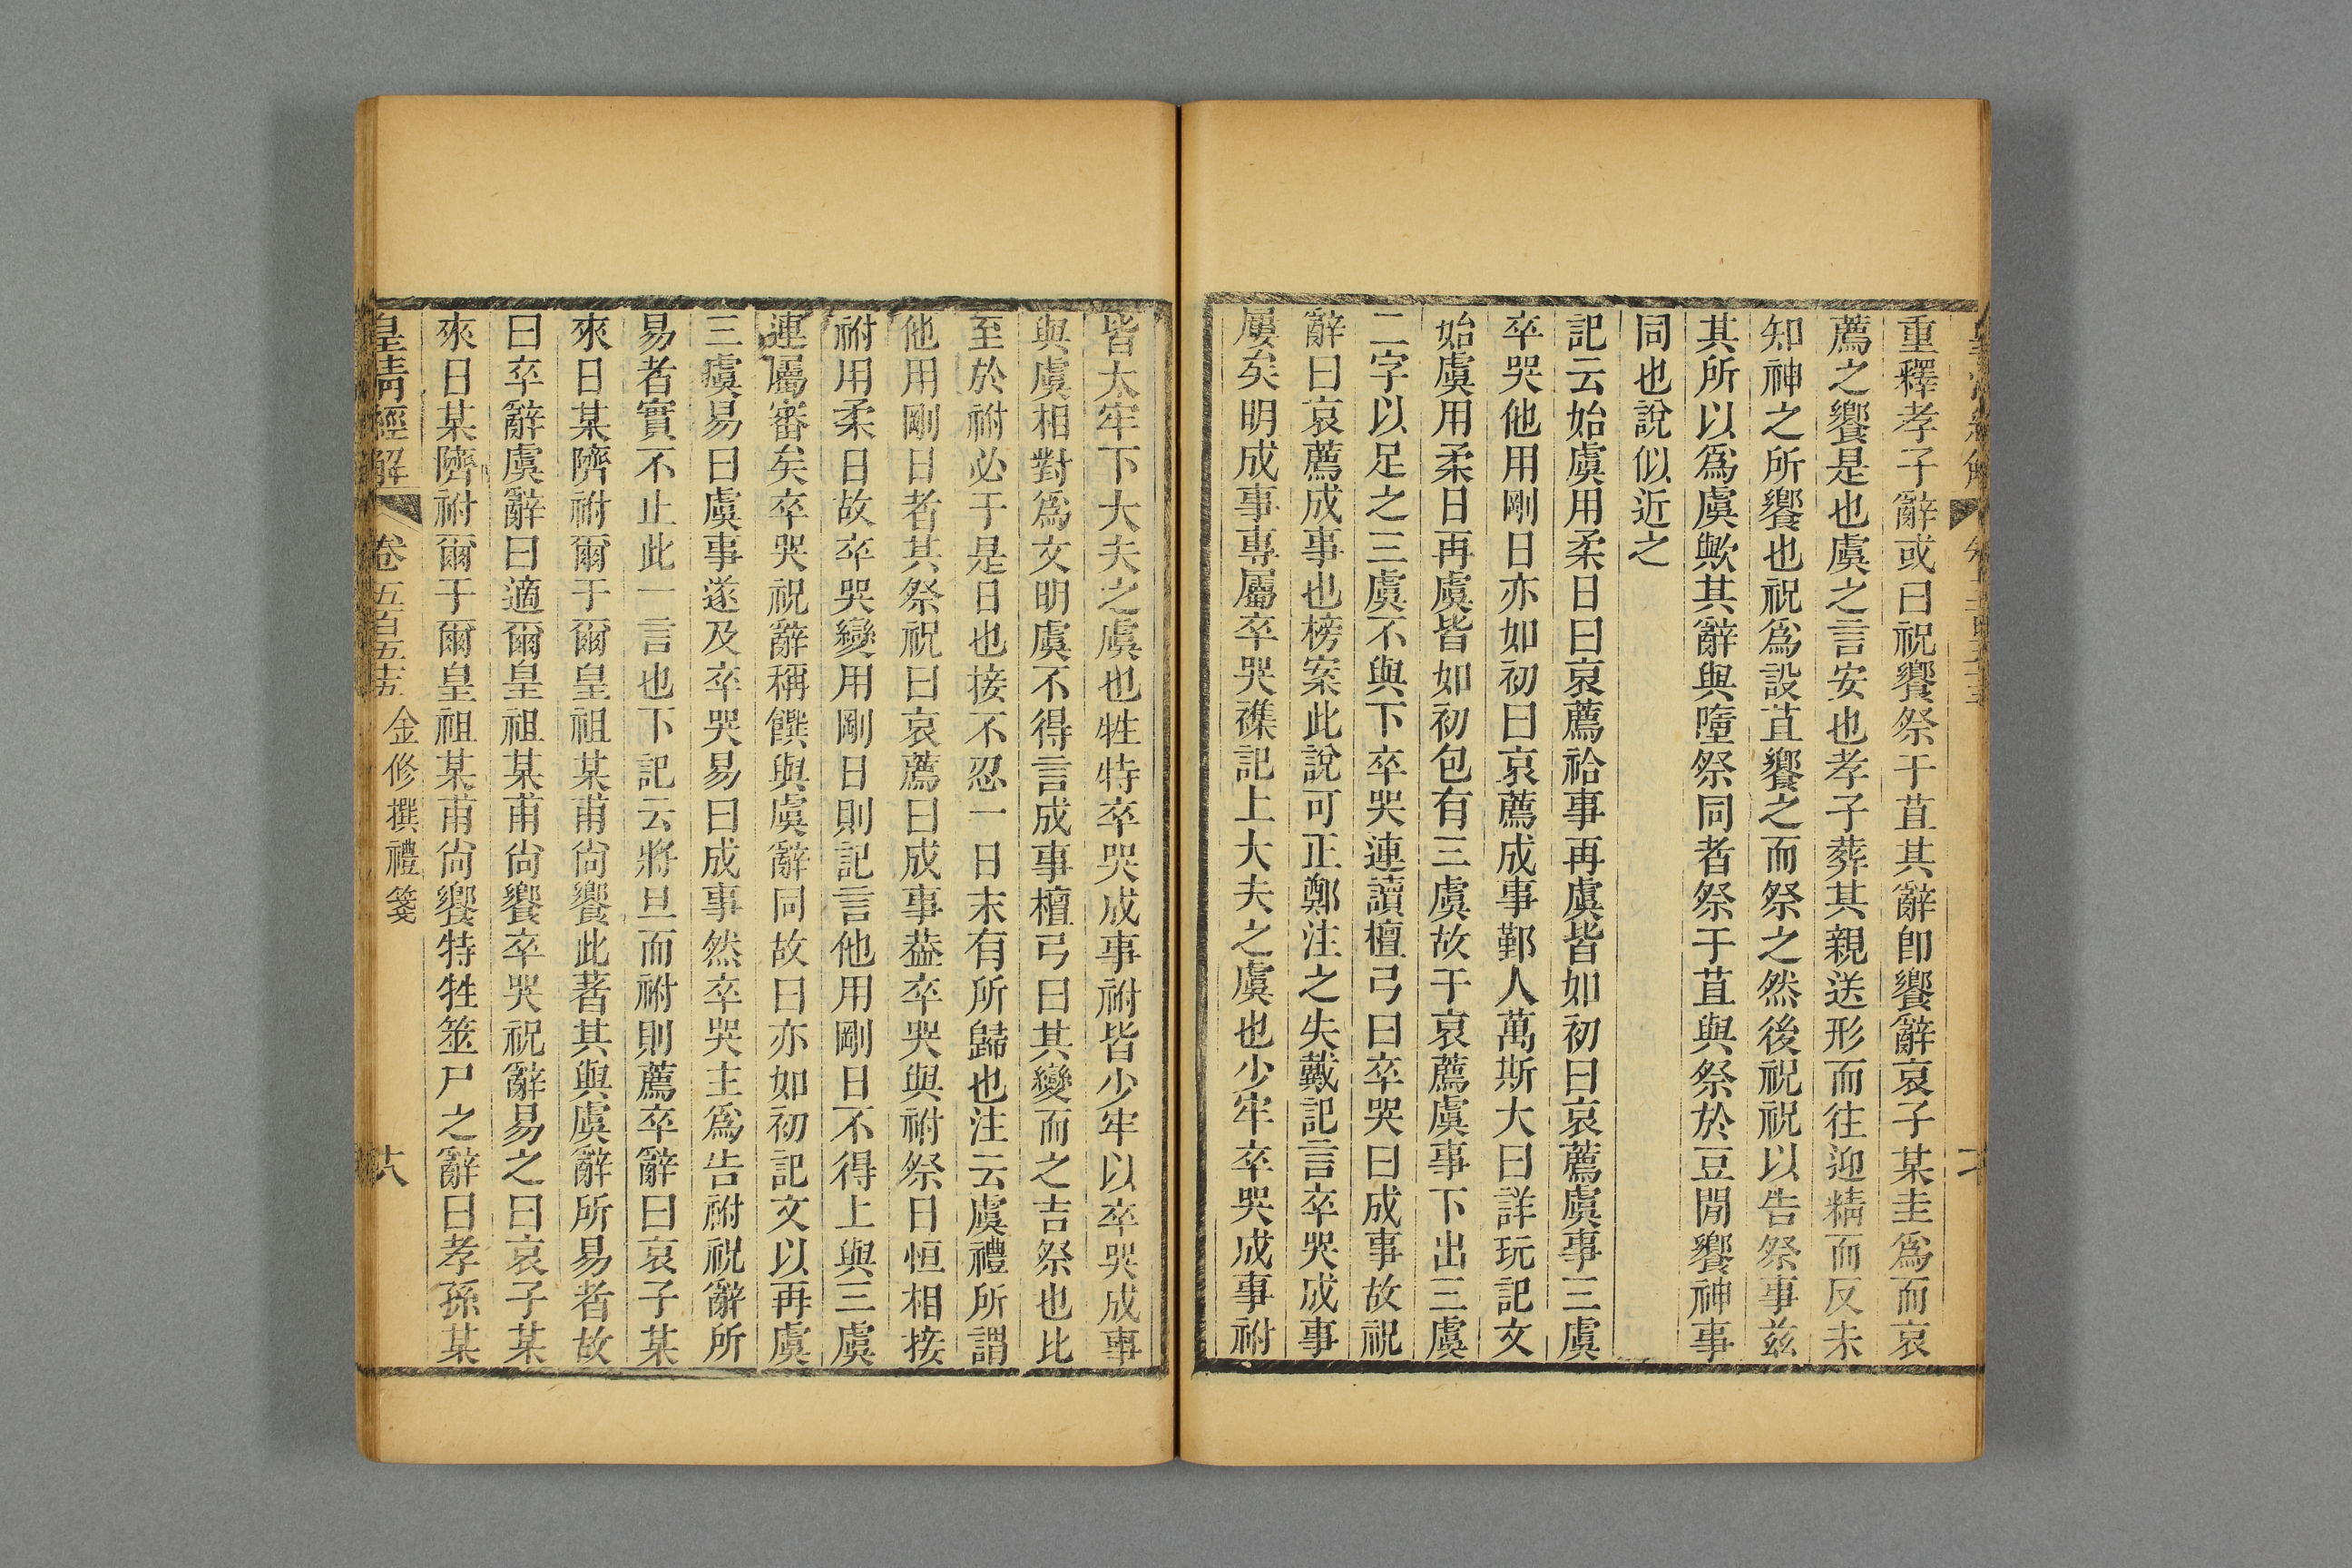 重釋孝子辭或曰祝饗祭于苴其辭卽饗辭哀子某圭爲而哀
薦之饗是也虞之言安也孝子葬其親送形而往迎精而反未
知神之所饗也祝爲設苴饗之而祭之然後祝祝以告祭事茲
其所以爲虞歟其辭與墮祭同者祭于苴與祭於豆閒饗神事
同也說似近之
記云始虞用柔日曰哀薦祫事再虞皆如初曰哀薦虞事三虞
卒哭他用剛日亦如初曰哀薦成事鄞人萬斯大曰詳玩記文
始虞用柔日再虞皆如初包有三虞故于哀薦虞事下出三虞
二字以足之三虞不與下卒哭連讀檀弓曰卒哭曰成事故祝
辭曰哀薦成事也榜案此說可正鄭注之失戴記言卒哭成事
屢矣明成事專屬卒哭襍記上大夫之虞也少牢卒哭成事祔
皆太牢下大夫之虞也牲特卒哭成事祔皆少牢以卒哭成事
與虞相對爲文明虞不得言成事檀弓曰其變而之吉祭也比
至於祔必于是日也接不忍一日末有所歸也注云虞禮所謂
他用剛日者其祭祝曰哀薦曰成事葢卒哭與祔祭日恒相接
祔用柔日故卒哭變用剛日則記言他用剛日不得上與三虞
連屬審矣卒哭祝辭稱饌與虞辭同故曰亦如初記文以再虞
三虞易曰虞事遂及卒哭易曰成事然卒哭主爲告祔祝辭所
易者實不止此一言也下記云將旦而祔則薦卒辭曰哀子某
來日某隮祔爾于爾皇祖某甫尙饗此著其與虞辭所易者故
曰卒辭虞辭曰適爾皇祖某甫尙饗卒哭祝辭易之曰哀子某
來日某隮祔爾于爾皇祖某甫尙饗特牲筮尸之辭曰孝孫某
皇清經解 卷五百五十五 金修撰禮箋 十八